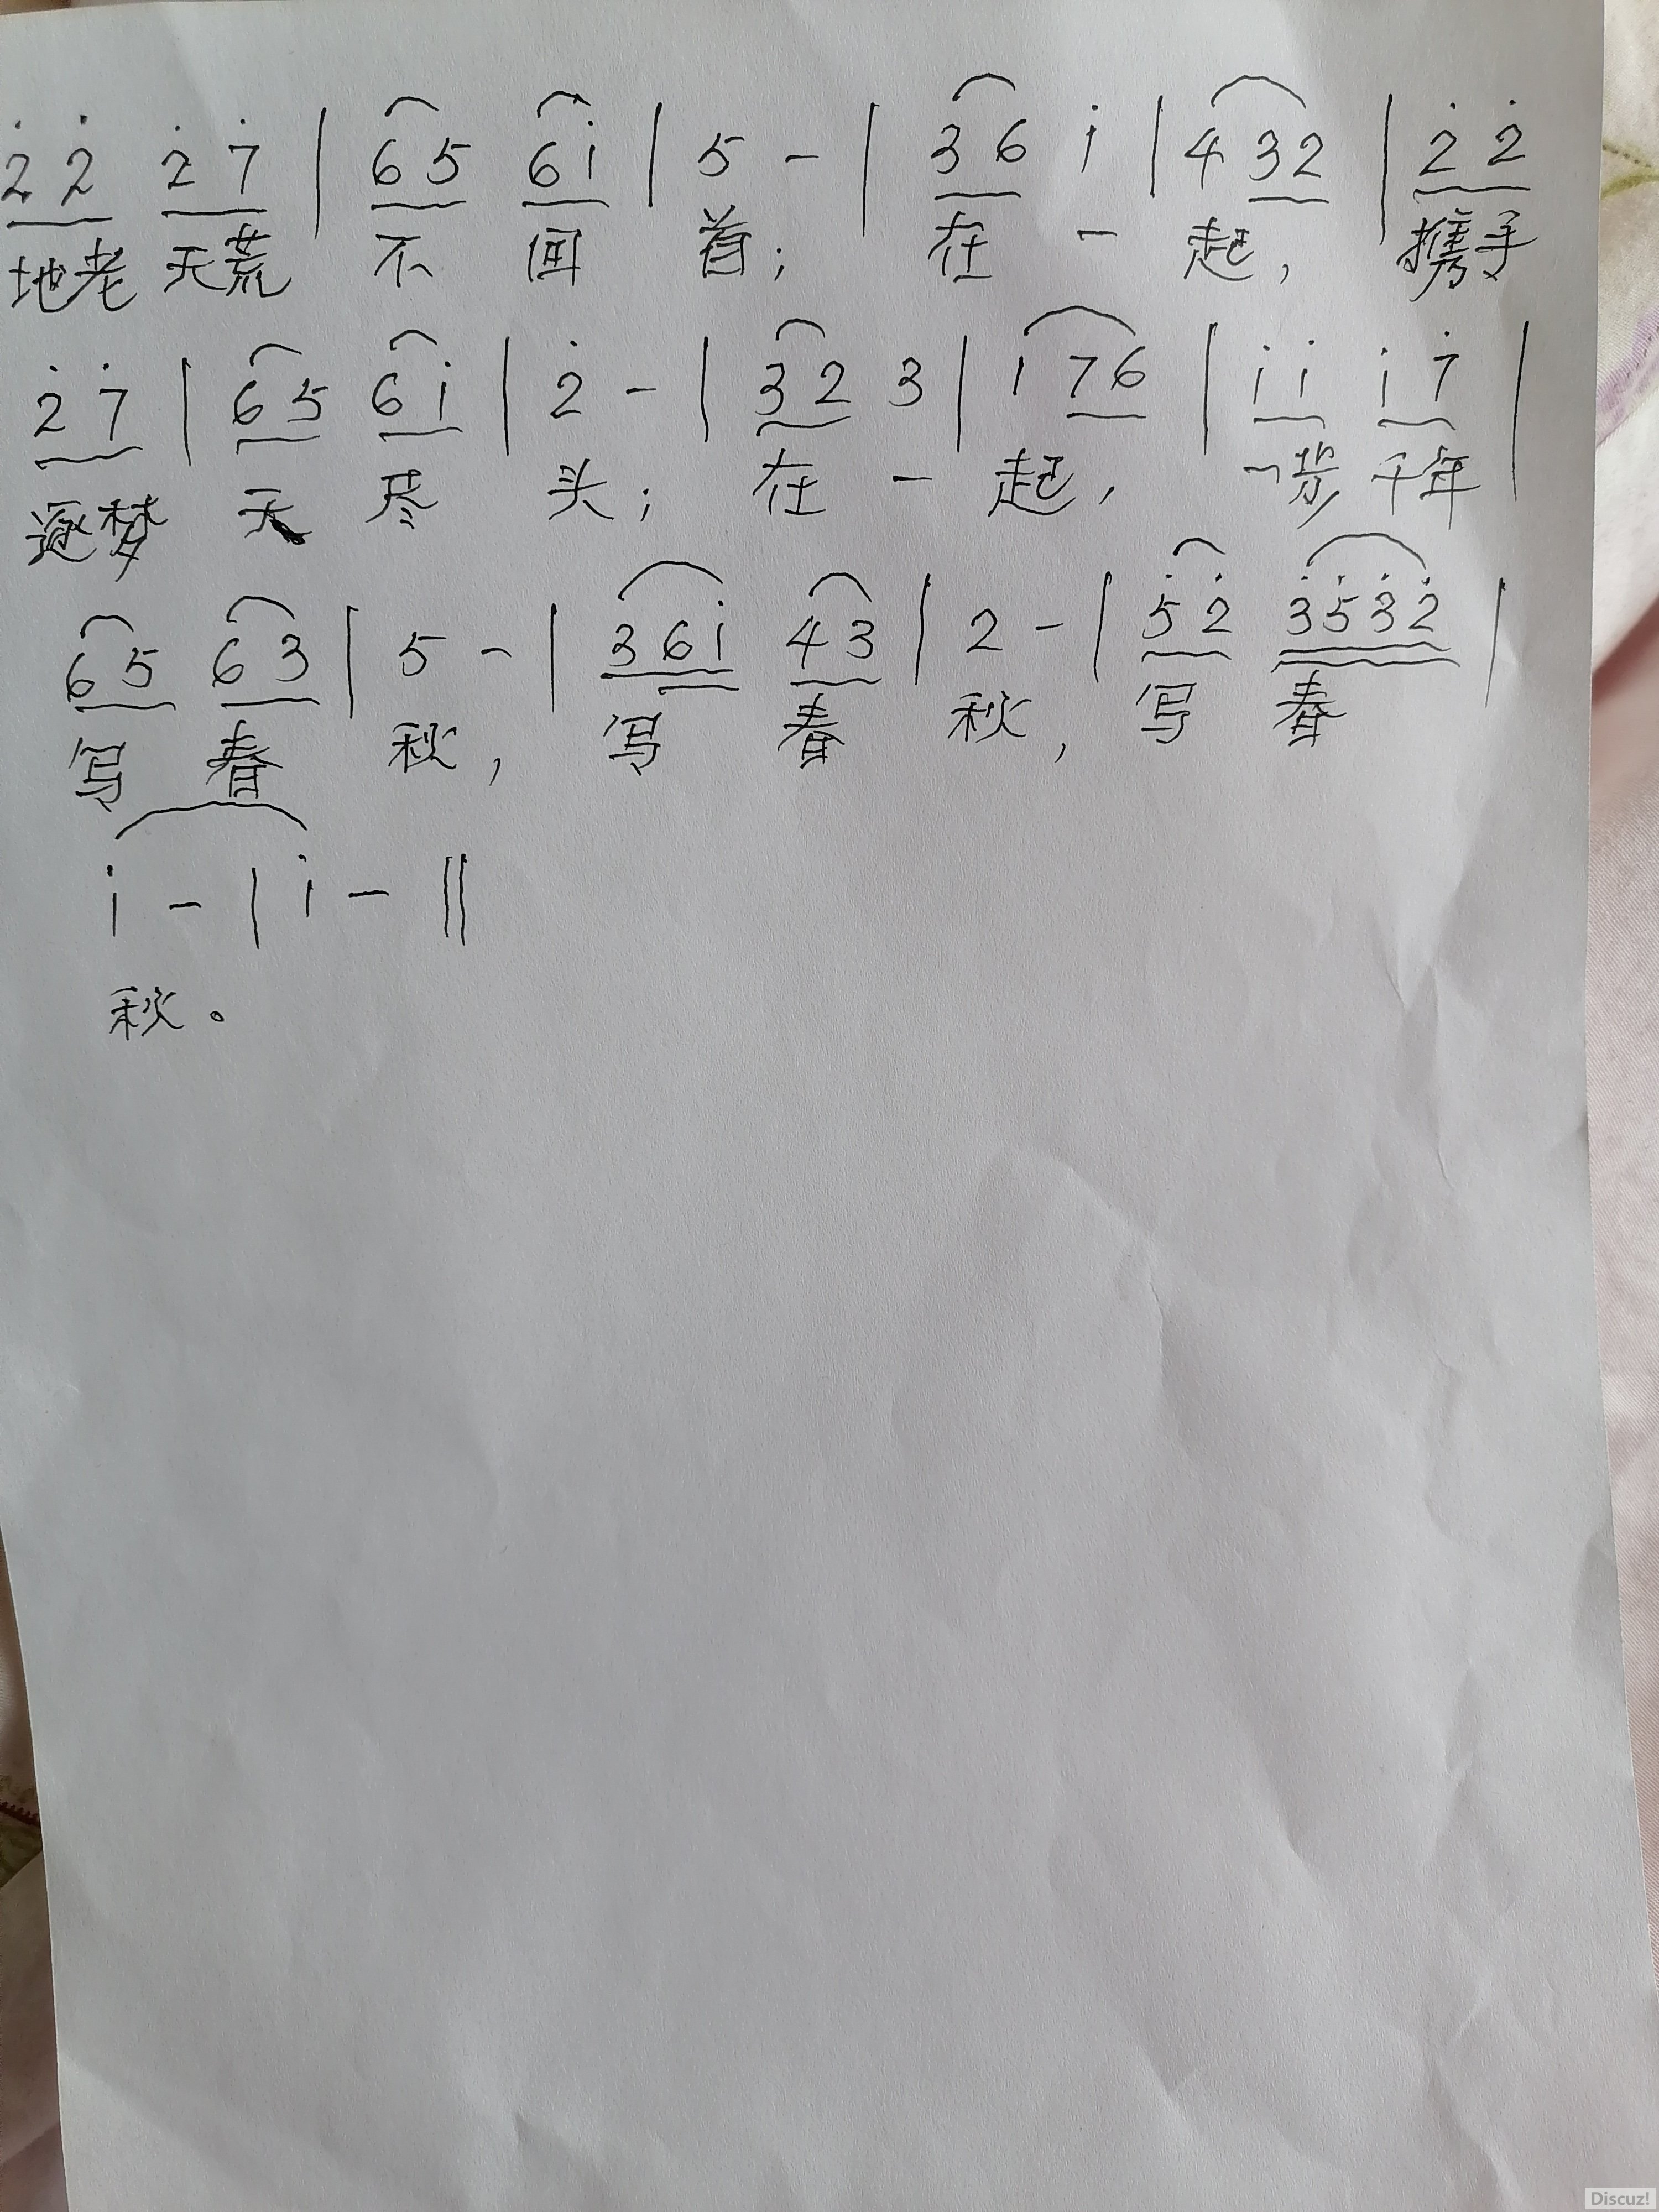 2̇ 2̇ 2̇ 7̇ | 6 5 6 1̇ | 5 - | 3 6 1̇ | 4 3 2 | 2̇ 2̇
地老 天荒 不 回 首； 在 一 起， 携手
2̇ 7̇ | 6 5 6 1̇ | 2̇ - | 3 2 3 | 1 7 6 | 1̇ 1̇ 1̇ 7̇ |
逐梦 天 尽 头； 在 一 起， 一步 千年
6 5 6 3 | 5 - | 3 6 1̇ 4 3 | 2 - | 5̇ 2̇ 3̇ 5̇ 3̇ 2̇ |
写 春 秋， 写 春 秋， 写 春
1̇ - | 1̇ - ‖
秋。
Discuz!